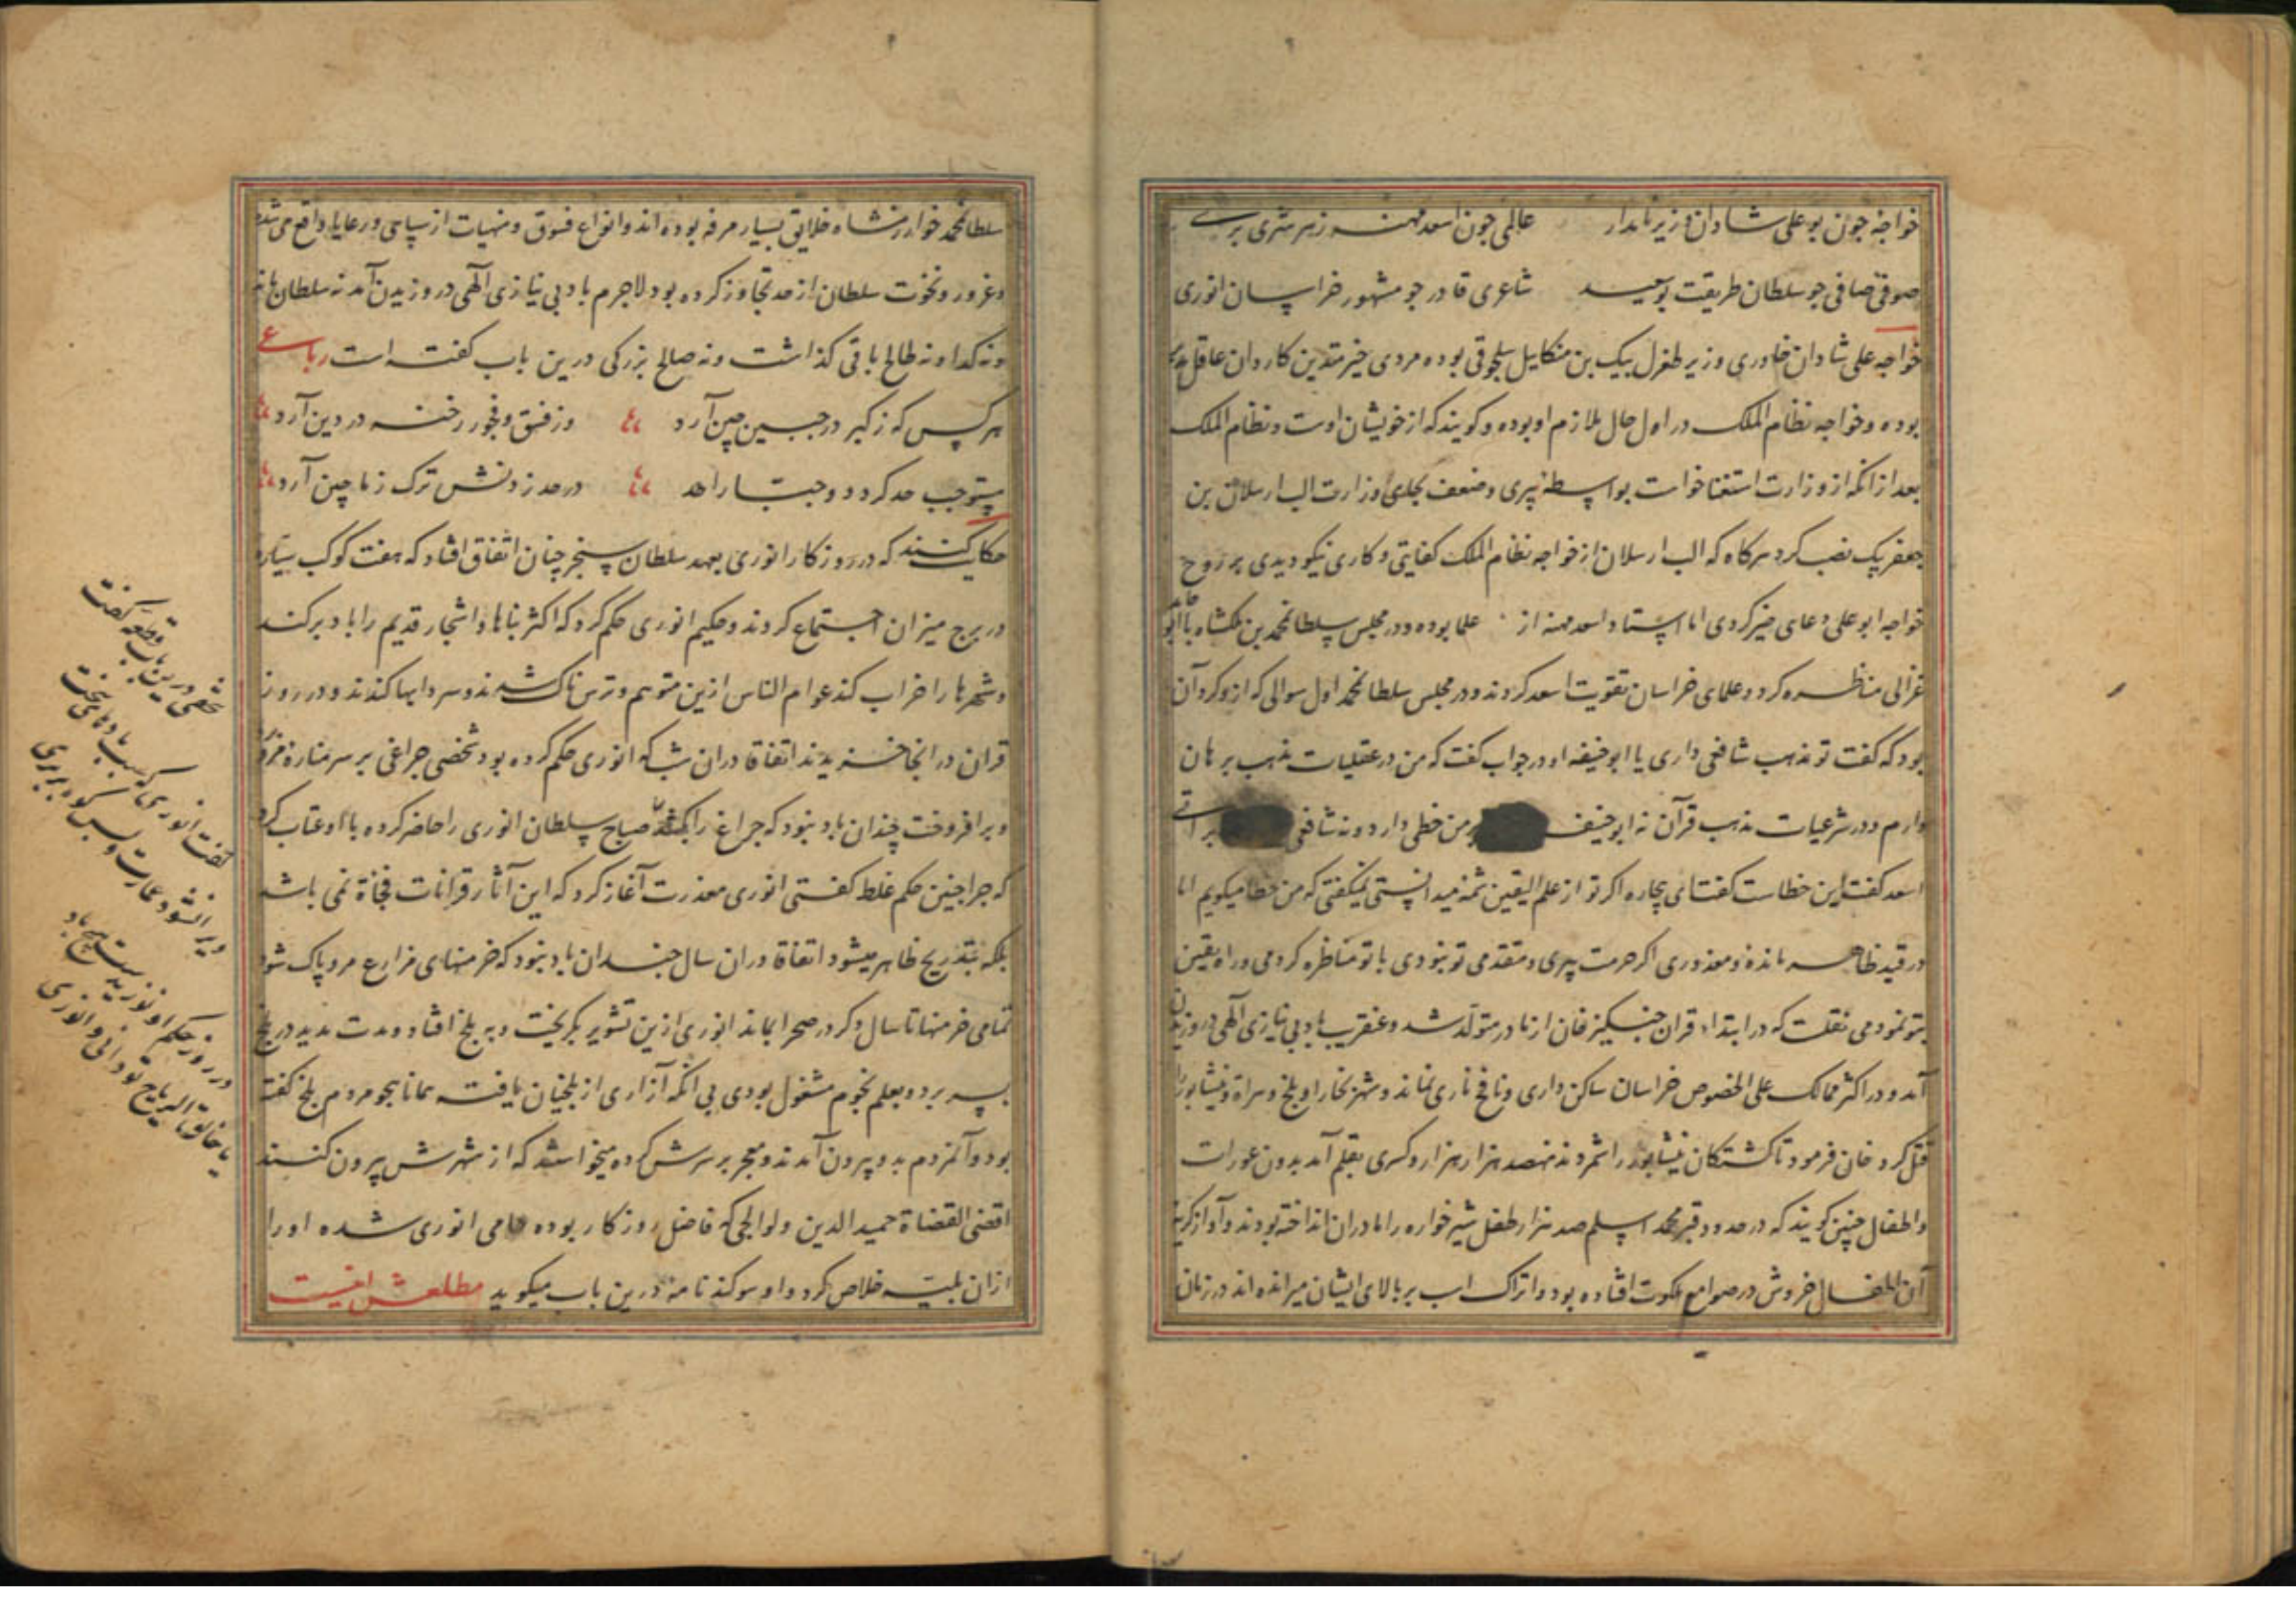 خواجهٔ چون بو علی شادان وزیر نامدار عالمی چون اسعد مهنه ز هر شری بری
صوفی صافی چو سلطان طریقت بوسعید شاعری قادر چو مشهور خراسان انوری
خواجه علی شادان خاوری وزیر طغرل بیک بن میکاییل سلجوقی بوده مردی خیر متدین کاردان عاقل
بوده و خواجه نظام الملک در اول حال ملازم او بوده و کویند که از خویشان اوست و نظام الملک
بعد از انکه از وزارت استعفا خواست بواسطه پیری و ضعف بجای او وزارت الب ارسلان بن
جعفر بیک نصب کرد هرکاه که الب ارسلان از خواجه نظام الملک کفایتی و کاری نیکو دیدی بر روح
خواجه ابو علی دعای خیر کردی اما استاد اسعد مهنه از علما بوده و در مجلس سلطان محمد بن ملکشاه با ابو
غزالی مناظره کرد و علمای خراسان تقویت اسعد کردند و در مجلس سلطان محمد اول سوالی که ازو کرد آن
بود که کفت تو مذهب شافعی داری یا ابو حنیفه او در جواب کفت که من در عقلیات مذهب برهان
دارم و در شرعیات مذهب قرآن نه ابو حنیفه بر من خطی دارد و نه شافعی براتی
اسعد کفت این خطاست کفت ای بیچاره اکر تو از علم الیقین شمه میدانستی نمیکفتی که من خطا میکویم اما
در قید ظاهر مانده و معذوری اکر حرمت پیری و مقدمی تو نبودی با تو مناظره کردمی و راه یقین
بتو نمودمی نقلست که در ابتداء قران جنکیز خان از مادر متولد شد و عنقریب باد بی نیازی الهی در وزیدن
آمد و در اکثر ممالک علی الخصوص خراسان ساکن داری و نافخ ناری نماند و شهر بخارا و بلخ و هراة و نیشابور را
قتل کرد خان فرمود تا کشتکان نیشابور را شمردند نهصد هزار هزار و کسری بقلم آمد بدون عورات
و اطفال چنین کویند که در حدود قبر محمد اسلم صد هزار طفل شیر خواره را مادران انداخته بودند و آواز کریه
آن اطفال خروش در صوامع ملکوت افتاده بود و اتراک اسب بر بالای ایشان میرانده اند در زمان
سلطان محمد خوارزمشاه خلایق بسیار مرفه بوده اند و انواع فسوق و منهیات از سپاهی و رعایا واقع می شده
و غرور و نخوت سلطان از حد تجاوز کرده بود لاجرم باد بی نیازی الهی در وزیدن آمد نه سلطان ماند
و نه کدا و نه طالح باقی کذاشت و نه صالح بزرکی درین باب کفته است رباعی
هر کس که ز کبر در جبین چین آرد وز فسق و فجور رخنه در دین آرد
مستوجب حد کردد و جبار احد در حد زدنش ترک ز ماچین آرد
حکایت کنند که در روزکار انوری بعهد سلطان سنجر چنان اتفاق افتاد که هفت کوکب سیاره
در برج میزان اجتماع کردند و حکیم انوری حکم کرد که اکثر بناها و اشجار قدیم را باد برکند
و شهرها را خراب کند عوام الناس ازین متوهم و ترسناک شدند و سردابها کندند و در روز
قران در انجا خزیدند اتفاقا دران شب که انوری حکم کرده بود شخصی چراغی بر سر مناره مرو
برافروخت چندان باد نبود که چراغ را بکشد صباح سلطان انوری را حاضر کرده با او عتاب کرد
که چرا چنین حکم غلط کفتی انوری معذرت آغاز کرد که این آثار قرانات فجاة نمی باشد
بلکه بتدریج ظاهر میشود اتفاقا دران سال چندان باد نبود که خرمنهای مزارع مرو پاک شود
تمامی خرمنها تا سال دکر در صحرا بماند انوری ازین تشویر بکریخت و به بلخ افتاد و مدت مدید در بلخ
بسر برد و بعلم نجوم مشغول بودی بی انکه آزاری از بلخیان یافت همانا هجو مردم بلخ کفته
بود و آنمردم بدو بیرون آمدند و معجر بر سرش کرده میخواستند که از شهرش بیرون کنند
اقضی القضاة حمید الدین ولوالجی که فاضل روزکار بوده حامی انوری شده اورا
ازان بلیه خلاص کرد و او سوکند نامه درین باب میکوید مطلعش اینست
شخصی درین باب قطعه کفت
کفت انوری که از سبب بادهای سخت
ویران شود عمارت و بس کوه بر سری
در روز حکم او نوزیدست هیچ باد
یا خالق الریاح تو دانی و انوری